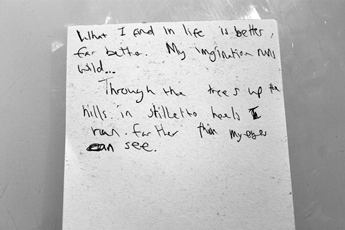 What I find in life is better,
far better. My imgination runs
wild...
Through the trees up the
hills in stilletto heels I
run farther than my eyes
can see.